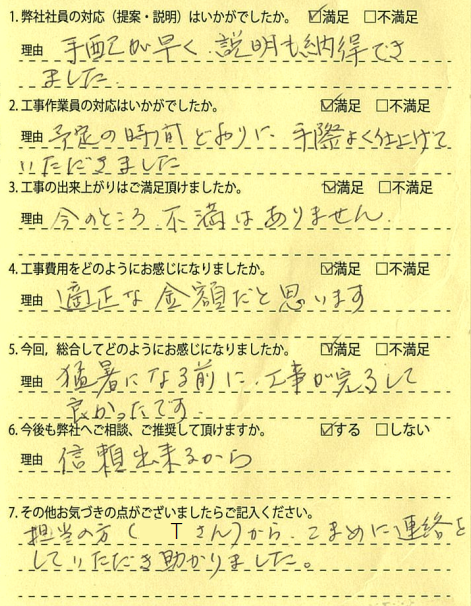 1. 弊社社員の対応（提案・説明）はいかがでしたか。 ☑満足 □不満足
理由 手配が早く、説明も納得でき
ました。
2. 工事作業員の対応はいかがでしたか。 ☑満足 □不満足
理由 予定の時間どおりに、手際よく仕上げて
いただきました
3. 工事の出来上がりはご満足頂けましたか。 ☑満足 □不満足
理由 今のところ、不満はありません。
4. 工事費用をどのようにお感じになりましたか。 ☑満足 □不満足
理由 適正な金額だと思います
5. 今回，総合してどのようにお感じになりましたか。 ☑満足 □不満足
理由 猛暑になる前に、工事が完了して
良かったです。
6. 今後も弊社へご相談、ご推奨して頂けますか。 ☑する □しない
理由 信頼出来るから
7. その他お気づきの点がございましたらご記入ください。
担当の方（ T さん）から、こまめに連絡を
していただき助かりました。